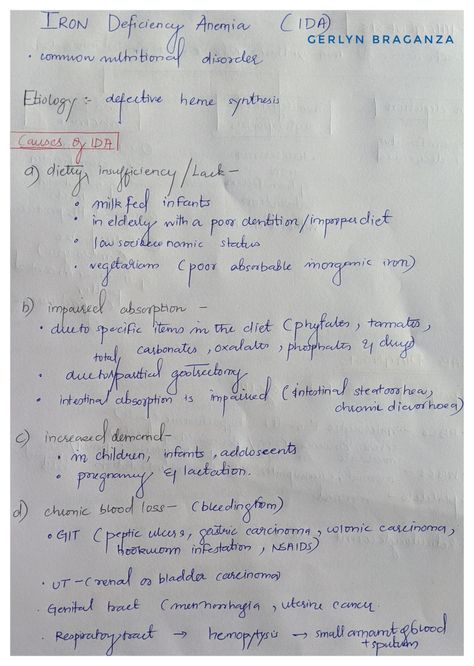 IRON Deficiency Anemia (IDA)
GERLYN BRAGANZA
• common nutritional disorder
Etiology :- defective heme synthesis
Causes of IDA
a) dietry insufficiency/Lack -
• milk fed infants
• in elderly with a poor dentition/improper diet
• low socioeconomic status
• vegetarians (poor absorbable inorganic iron)
b) impaired absorption -
• due to specific items in the diet (phytates, tannates,
carbonates, oxalates, phosphates & drugs
• due to total/partial gastrectomy
• intestinal absorption is impaired (intestinal steatorrhea,
chronic diarrhoea)
c) increased demand -
• in children, infants, adoloscents
• pregnancy & lactation.
d) chronic blood loss - (bleeding from)
• GIT (peptic ulcers, gastric carcinoma, colonic carcinoma,
hookworm infestation, NSAIDS)
• UT - (renal or bladder carcinoma)
• Genital tract (menorrhagia, uterine cancer
• Respiratory tract → hemoptysis → small amount of blood
+ sputum